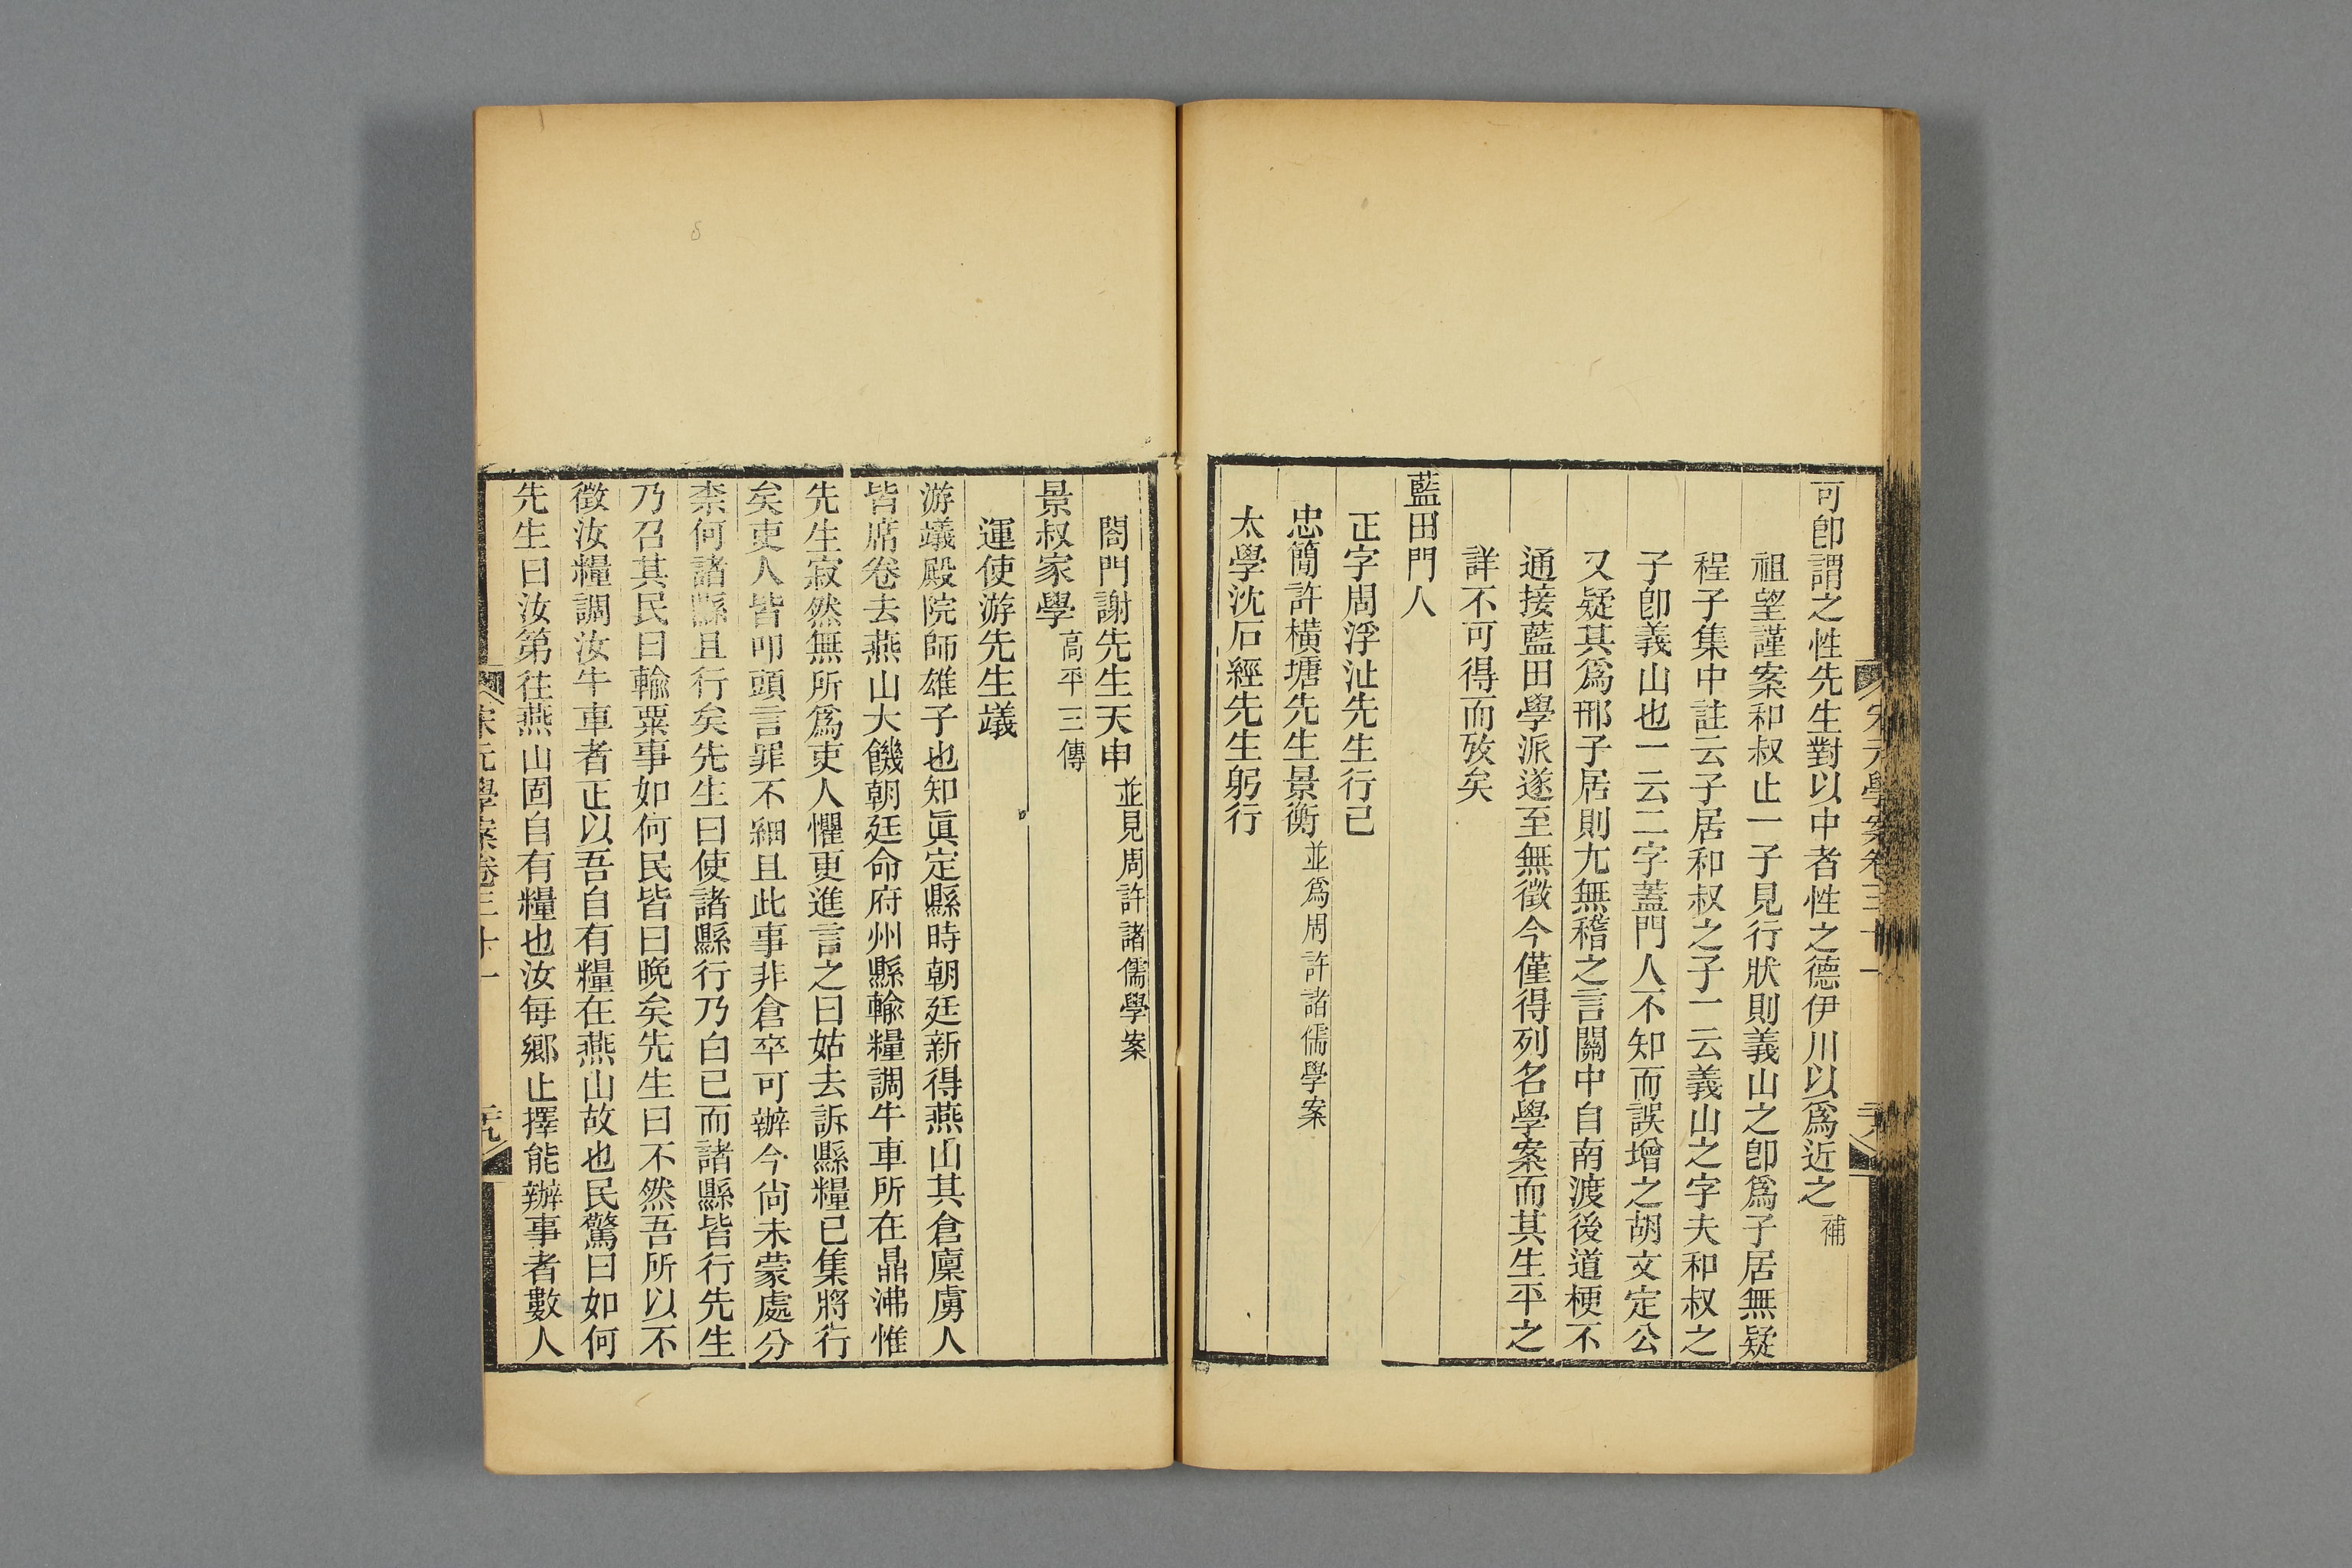 宋元學案卷三十一 二十八
可卽謂之性先生對以中者性之德伊川以爲近之補
祖望謹案和叔止一子見行狀則義山之卽爲子居無疑
程子集中註云子居和叔之子一云義山之字夫和叔之
子卽義山也一云二字蓋門人不知而誤增之胡文定公
又疑其爲邢子居則尢無稽之言關中自南渡後道梗不
通接藍田學派遂至無徵今僅得列名學案而其生平之
詳不可得而攷矣
藍田門人
正字周浮沚先生行己
忠簡許橫塘先生景衡並爲周許諸儒學案
太學沈石經先生躬行
閤門謝先生天申並見周許諸儒學案
景叔家學高平三傳
運使游先生㠖
游㠖殿院師雄子也知眞定縣時朝廷新得燕山其倉廩虜人
皆席卷去燕山大饑朝廷命府州縣輸糧調牛車所在鼎沸惟
先生寂然無所爲吏人懼更進言之曰姑去訴縣糧已集將行
矣吏人皆叩頭言罪不細且此事非倉卒可辦今尙未蒙處分
柰何諸縣且行矣先生曰使諸縣行乃白已而諸縣皆行先生
乃召其民曰輸粟事如何民皆曰晚矣先生曰不然吾所以不
徵汝糧調汝牛車者正以吾自有糧在燕山故也民驚曰如何
先生曰汝第往燕山固自有糧也汝每鄉止擇能辦事者數人
宋元學案卷三十一 二十九